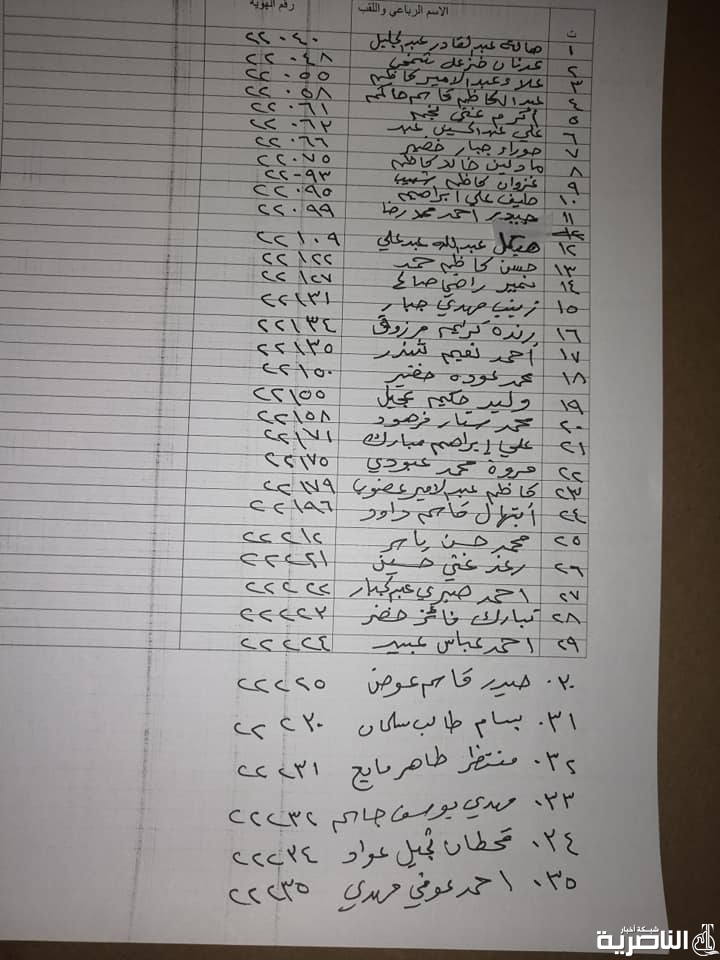 ت الاسم الرباعي واللقب رقم الهوية
١ صالح عبد القادر عبد الجليل ٢٢٠٤٠
٢ عدنان خزعل شمخي ٢٢٠٤٨
٣ علاء عبد الامير كاظم ٢٢٠٥٥
٤ عبد الكاظم كاسم حاكم ٢٢٠٥٨
٥ أكرم غني نجم ٢٢٠٦١
٦ علي عبد الحسين عبد ٢٢٠٦٢
٧ حوراء جبار خضير ٢٢٠٦٦
٨ مادلين خالد كاظم ٢٢٠٧٥
٩ غزوان كاظم ٢٢٠٩٣
١٠ خليف علي ابراهيم ٢٢٠٩٥
١١ حيدر احمد محمد رضا ٢٢٠٩٩
١٢ هيكل عبد الله عبد علي ٢٢١٠٩
١٣ حسن كاظم حمد ٢٢١٢٢
١٤ نمير راضي صالح ٢٢١٢٧
١٥ زينب مهدي جبار ٢٢١٣١
١٦ رنده كريم مرزوق ٢٢١٣٤
١٧ أحمد نعيم شنذر ٢٢١٣٥
١٨ محمد عوده خضير ٢٢١٥٠
١٩ وليد حكيم عجيل ٢٢١٥٥
٢٠ محمد ستار فرهود ٢٢١٥٨
٢١ علي إبراهيم مبارك ٢٢١٧١
٢٢ مروة محمد عبودي ٢٢١٧٥
٢٣ كاظم عبد الامير ٢٢١٧٩
٢٤ أبتهال قاسم داود ٢٢١٩٦
٢٥ محمد حسن ياسر ٢٢٢١٢
٢٦ رغد غني حسين ٢٢٢٢١
٢٧ احمد صبري عبد الجبار ٢٢٢٢٢
٢٨ تبارك فائز خضر ٢٢٢٢٣
٢٩ احمد عباس عبيد ٢٢٢٢٤
٣٠. حيدر قاسم عوض ٢٢٢٢٥
٣١. بسام طالب سلمان ٢٢٢٣٠
٣٢. منتظر طاهر مايع ٢٢٢٣١
٣٣. مهدي يوسف جاسم ٢٢٢٣٢
٣٤. قحطان ثجيل عواد ٢٢٢٣٤
٣٥. احمد عوفي مهدي ٢٢٢٣٥
شبكة أخبار
الناصرية